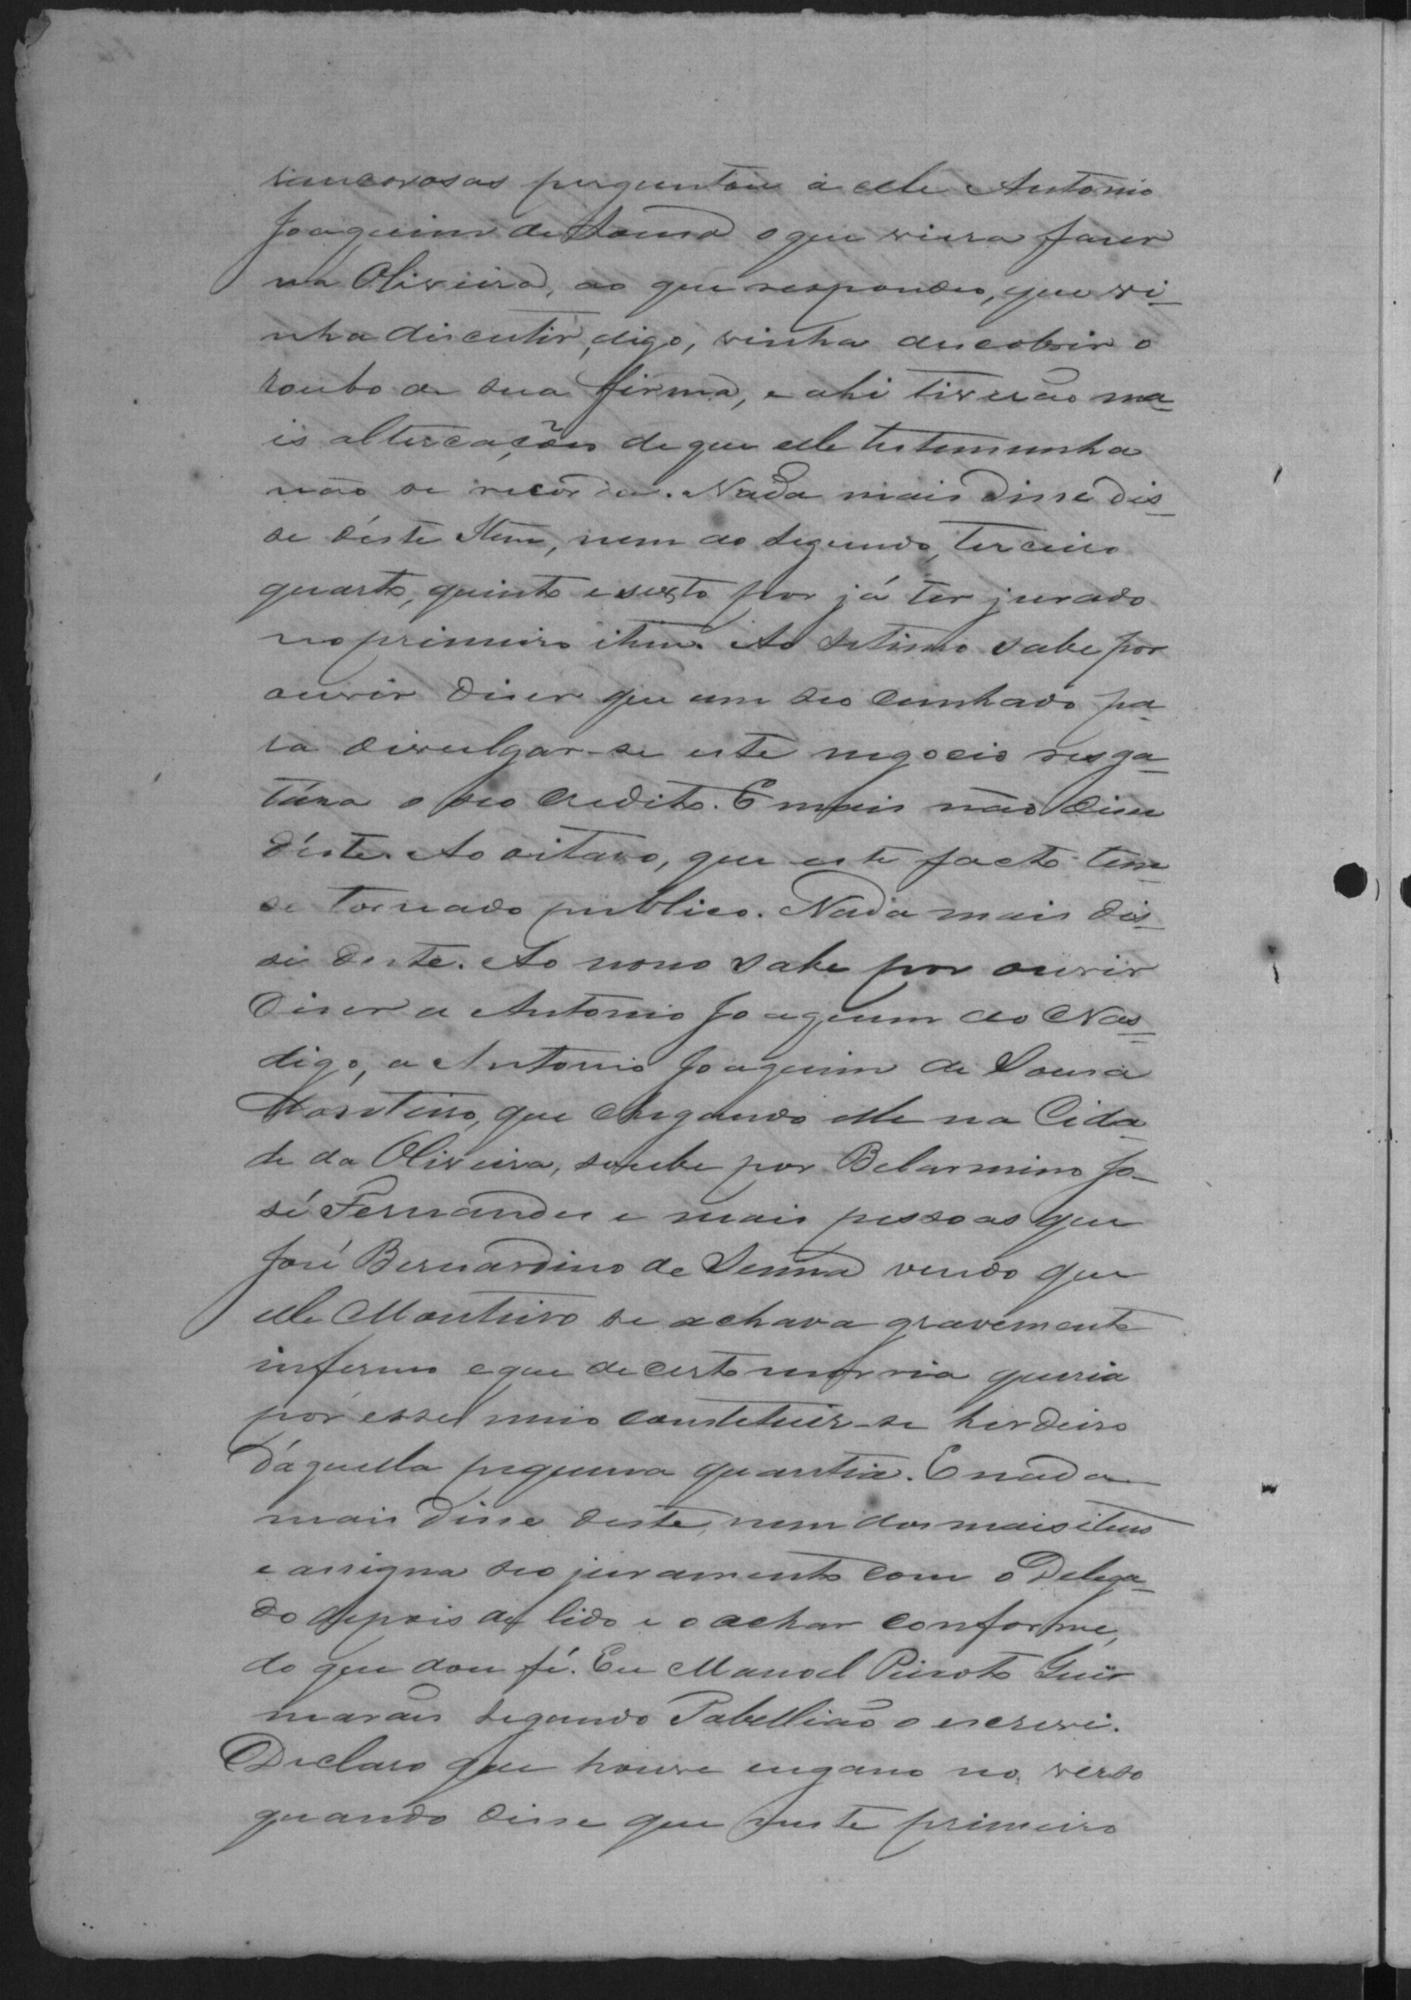 rancorosas perguntou á elle Antonio
Joaquim de Sousa o que viera faser
na Oliveira, ao que respondeo, que vi-
nha discutir, digo, vinha descobrir o
roubo de sua firma, e ahi tiverão ma-
is altercações de que elle testemunha
não se recorda. Nada mais disse dis-
se déste Item, nem ao segundo, terceiro
quarto, quinto e sexto por já ter jurado
no primeiro item. Ao setimo sabe por
ouvir diser que um seo cunhado pa-
ra divulgar-se este negocio resga-
tára o seo credito. E mais não disse
déste. Ao oitavo, que este facto tem
se tornado publico. Nada mais dis-
se deste. Ao nono sabe por ouvir
diser a Antonio Joaquim do Nas-
digo, a Antonio Joaquim de Sousa
Monteiro, que chegando elle na Cida-
de da Oliveira, soube por Belarmino Jo-
sé Fernandes e mais pessoas que
José Bernardino de Senna vendo que
elle Monteiro se achava gravemente
infermo e que de certo morria queria
por esse meio constetuir-se herdeiro
dáquella pequena quantia. E nada
mais disse deste, nem dos mais itens
e assigna seo juramento com o Delega-
do depois de lido e o achar conforme,
do que dou fé. Eu Manoel Peixoto Gui
marães segundo Tabellião o escrevi.
Declaro que houve engano no verso
quando disse que neste primeiro